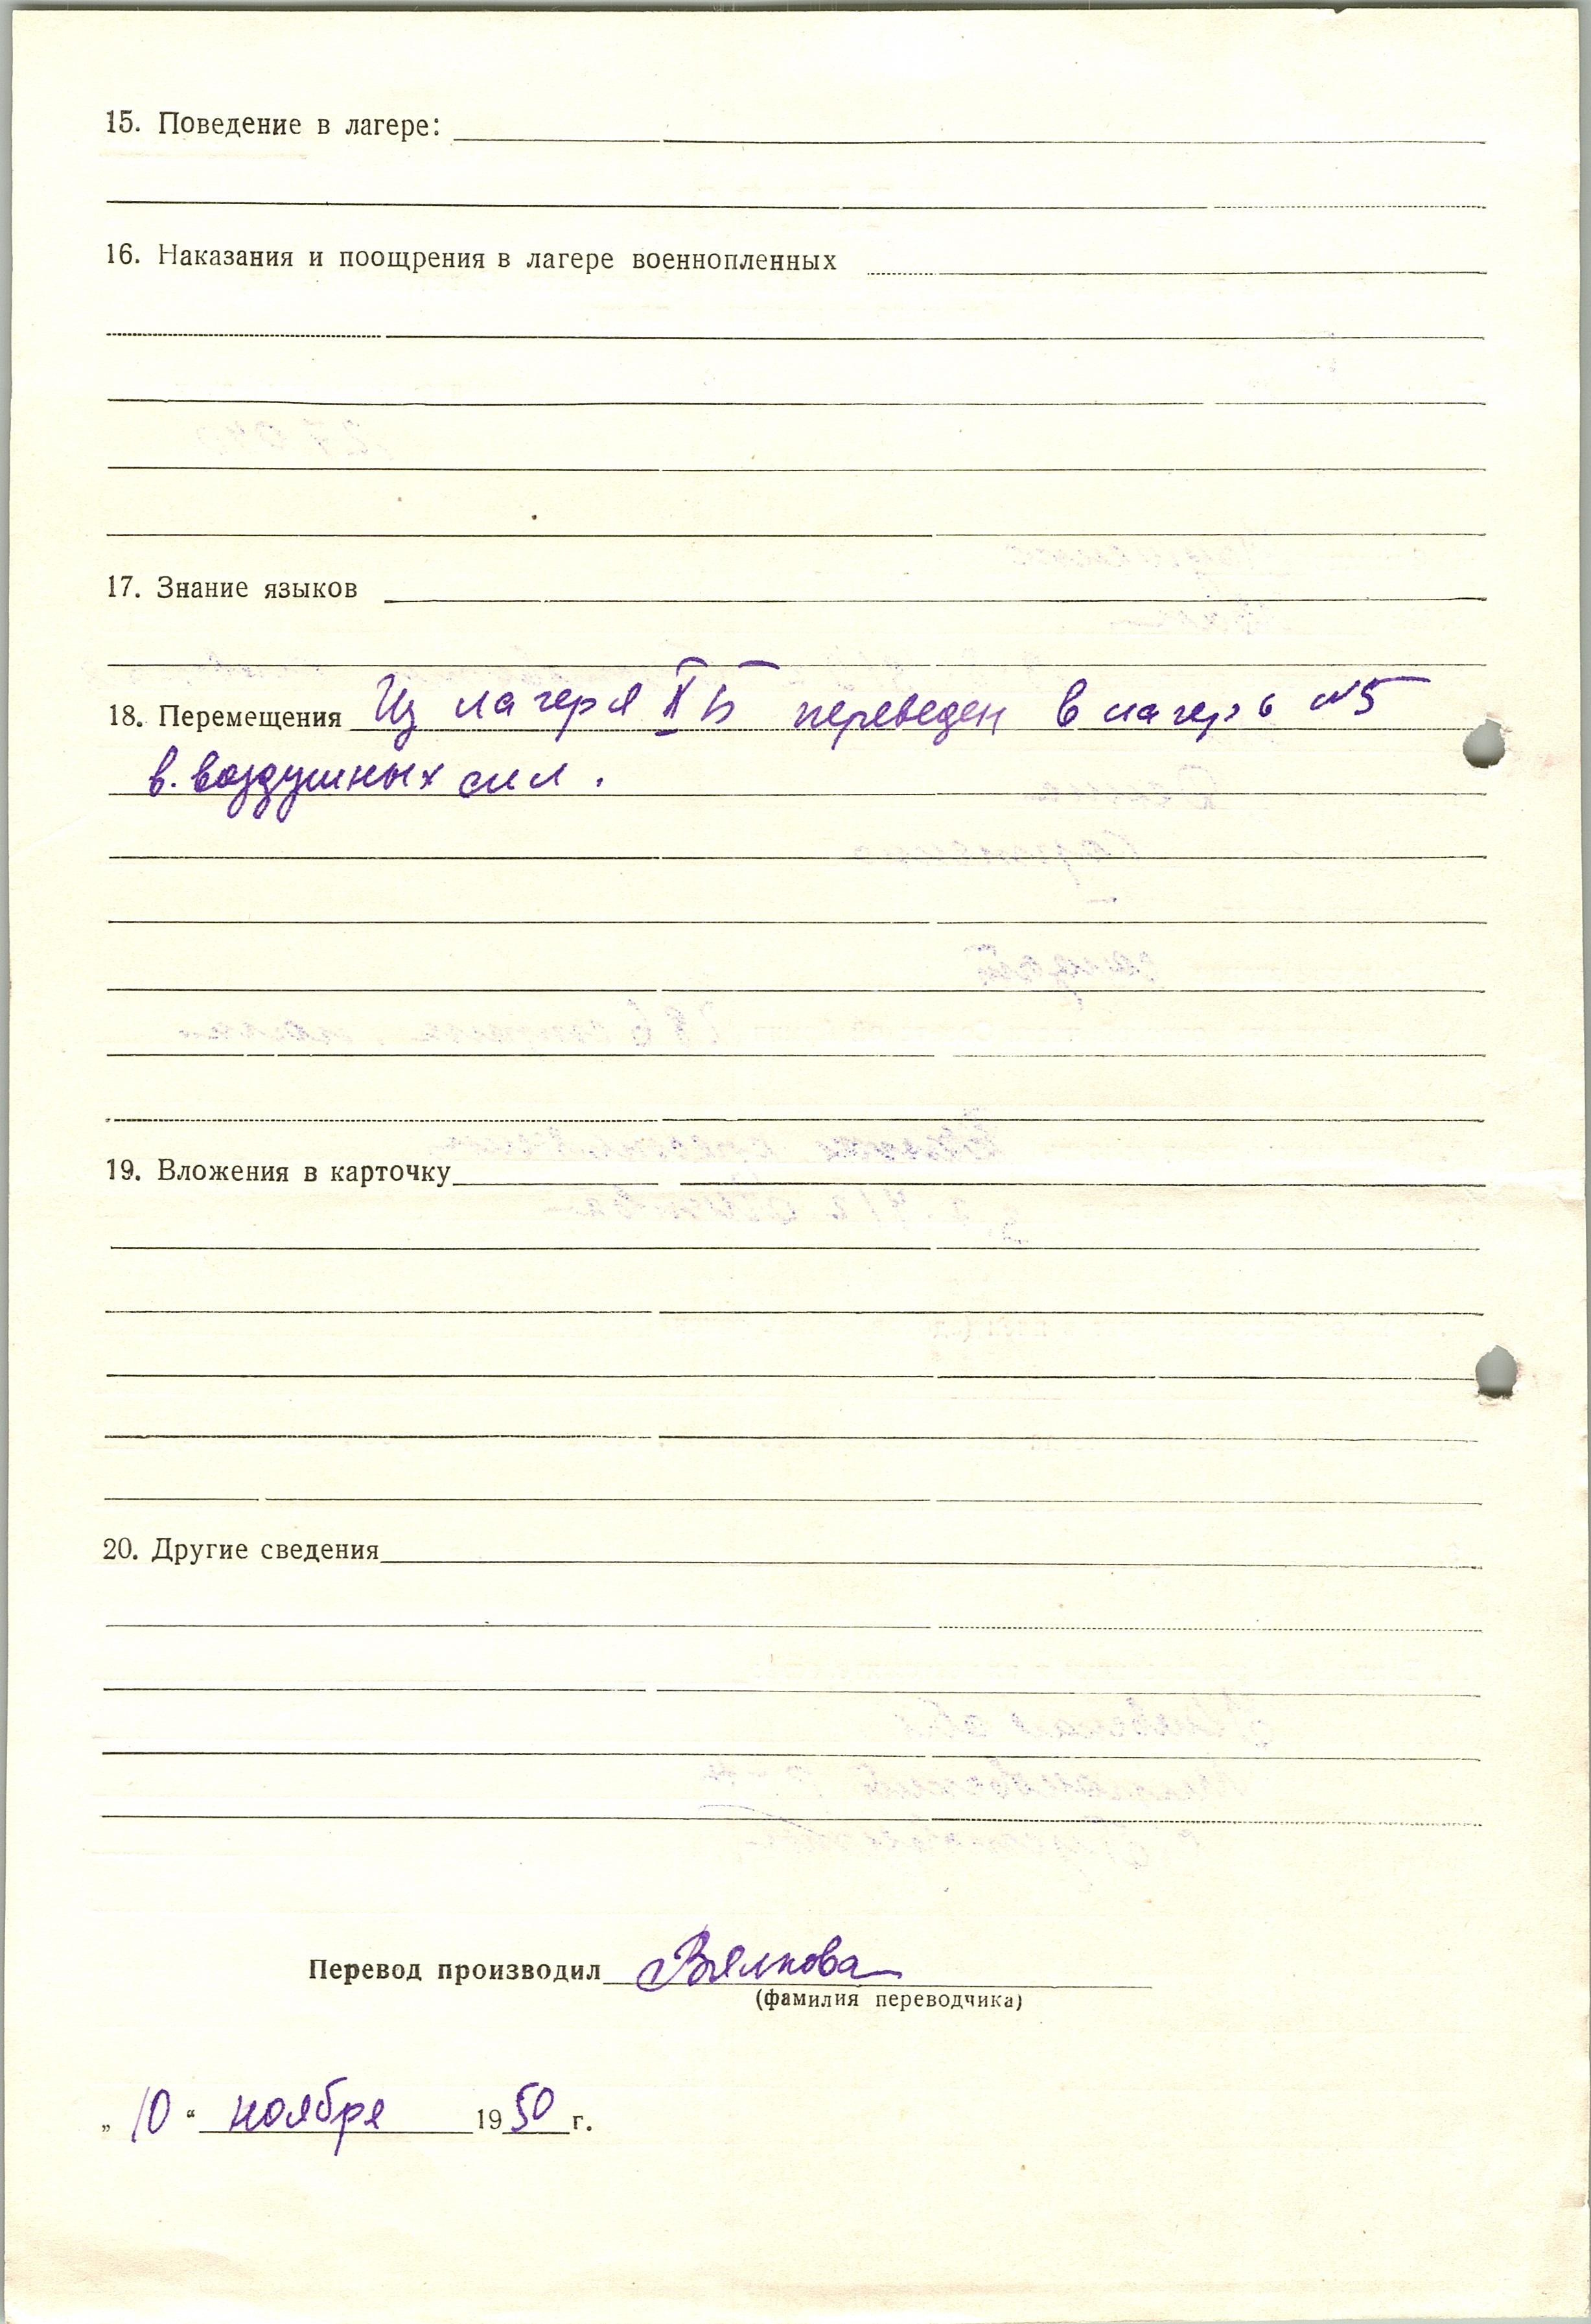 15. Поведение в лагере:
16. Наказания и поощрения в лагере военнопленных
17. Знание языков
18. Перемещения Из лагеря II Б переведен в лагерь №5
в. воздушных сил.
19. Вложения в карточку
20. Другие сведения
Перевод производил Вялкова
(фамилия переводчика)
„ 10 “ ноября 1950 г.